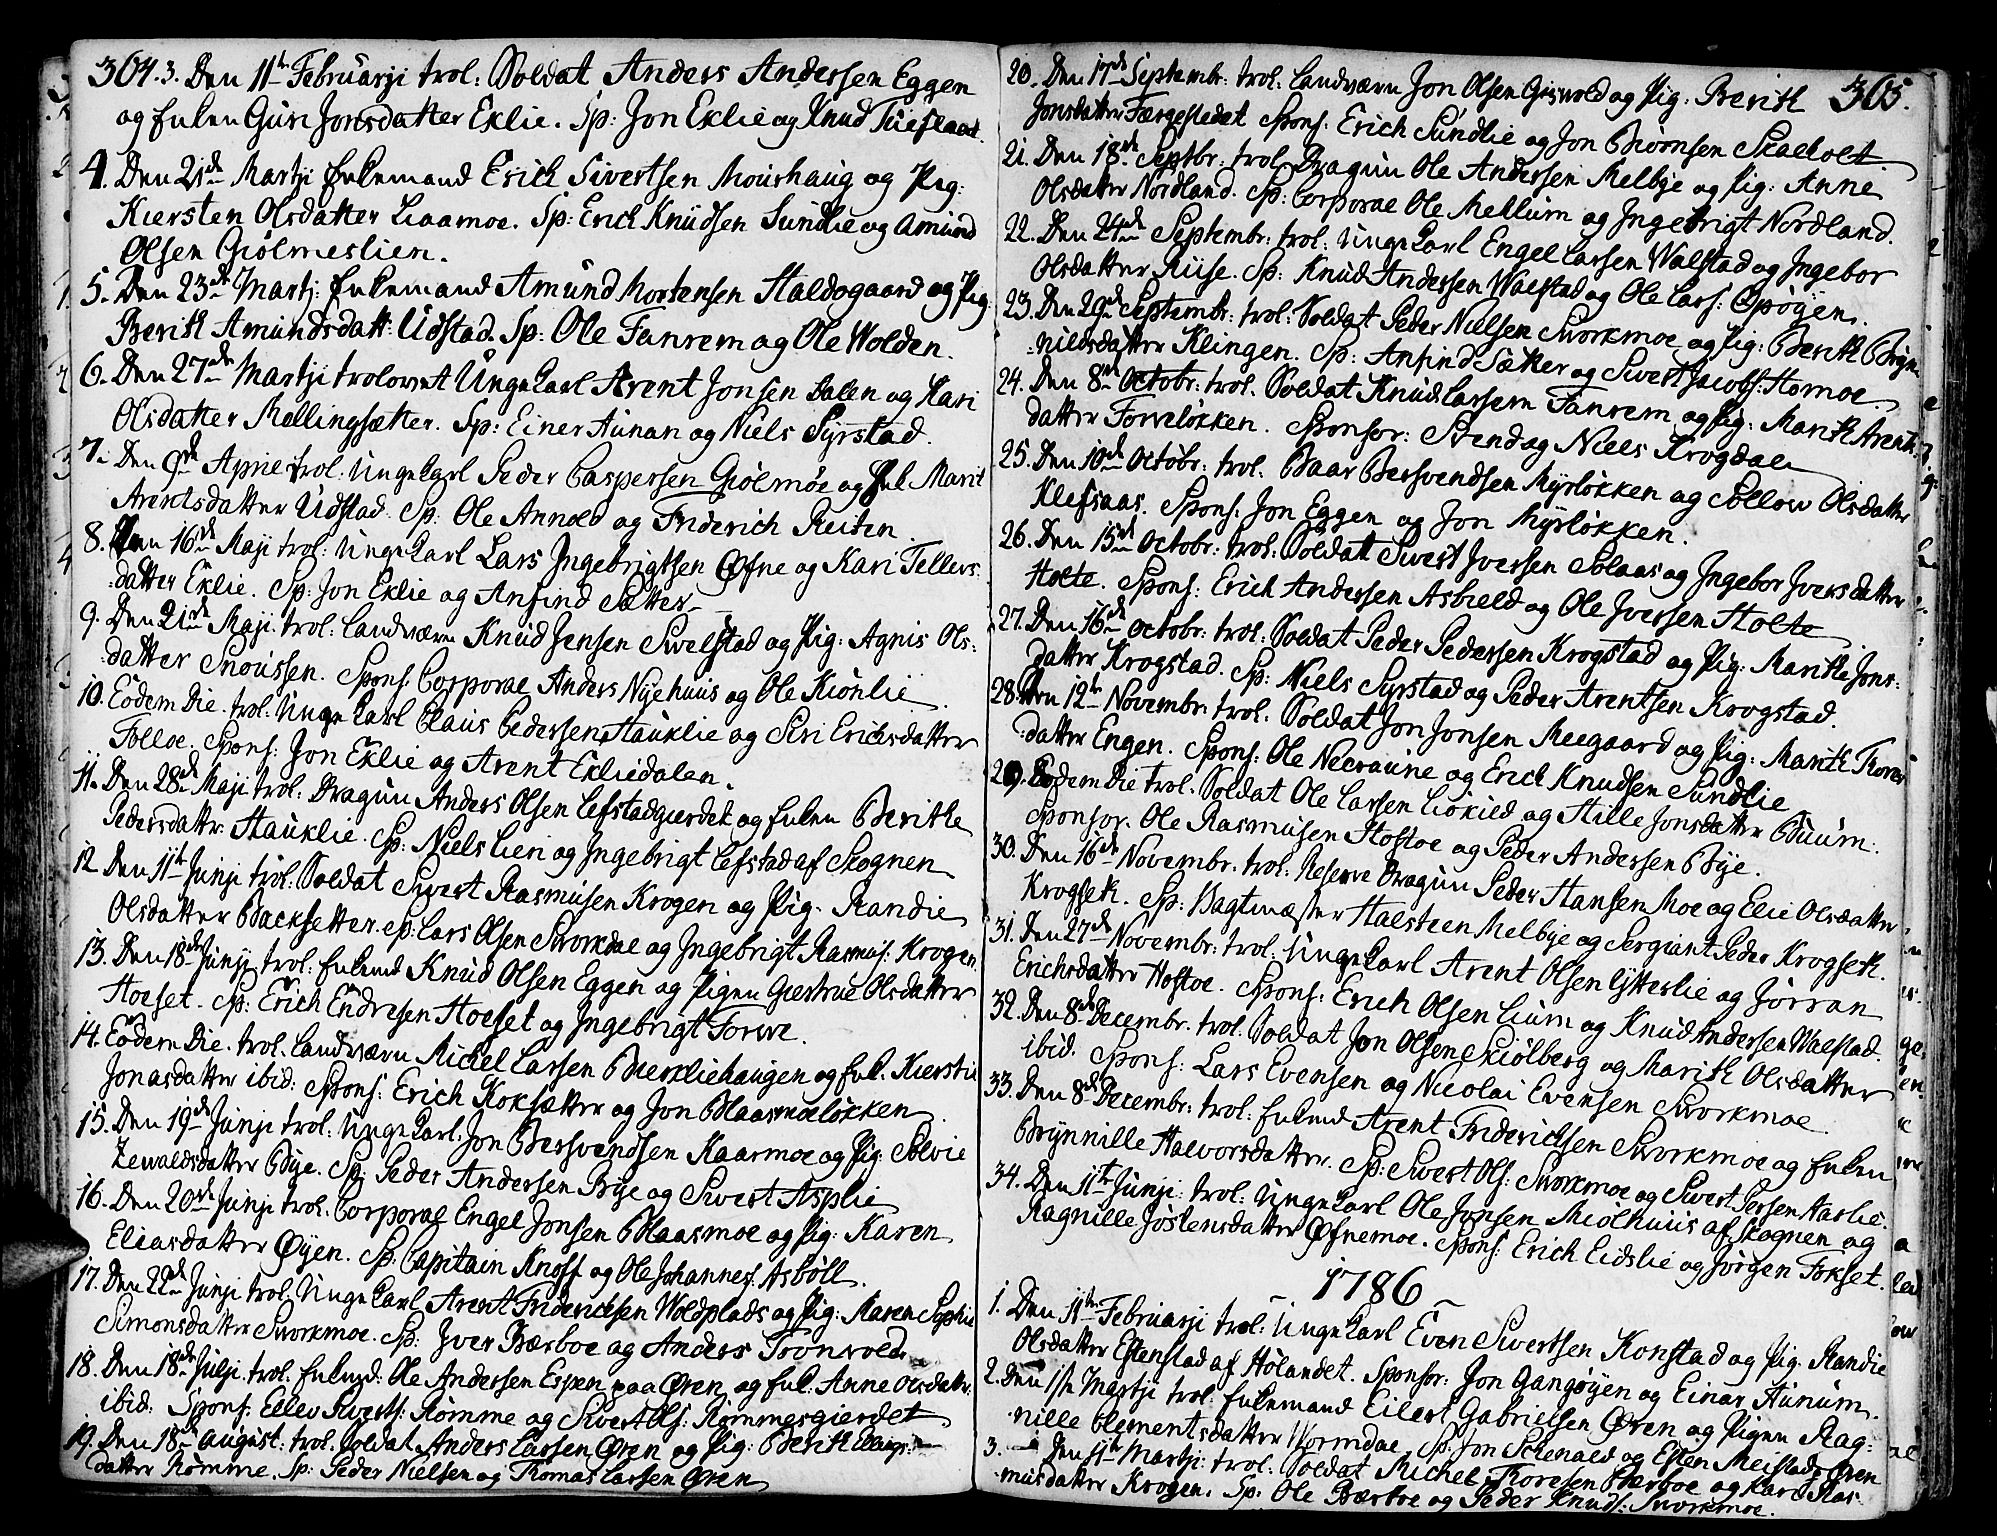 304. 3. Den 11te Februarji trol: Soldat Anders Andersen Eggen
og Enken Guri Jonsdatter Eklie. Sp: Jon Eklie og Knud
4. Den 21de Martji Enkemand Erich Sivertsen Mourhaug og Pig:
Kiersten Olsdatter Liaamoe. Sp: Erich Knudsen Sundlie og Amund
Olsen Giølmeslien.
5. Den 23de Martji: Enkemand Amund Mortensen Haldogaard og Pig:
Berith Amundsdatt: Udstad. Sp: Ole Fanrem og Ole Wolden.
6. Den 27de Martji trolovet UngeKarl Arent Jonsen Dalen og Kari
Olsdatter Mellingsætter. Sp: Einer Aunan og Niels Syrstad.
7. Den 9de April trol: UngeKarl Peder Caspersen Giølmøe og Enk. Marit
Arentsdatter Udstad. Sp: Ole Annold og Friderich Reiten.
8. Den 16de Maji trol: UngeKarl Lars Ingebrigtsen Øfne og Kari Tellevs:
datter Eklie. Sp: Jon Eklie og Anfind Sætter.
9. Den 21de Maji trol: Landværn Knud Jensen Swelstad og Pig: Agnis Ols:
datter Snoussen. Spons. Corporal Anders Nyehuus og Ole Kiønlie.
10. Eodem Die. trol: UngeKarl Claus Pedersen Hauklie og Siri Erichsdatter
Folloe. Spons: Jon Eklie og Arent Ekliedalen.
11. Den 28de Maji trol: Dragun Anders Olsen Lefstadgierdet og Enken Berithe
Pedersdattr: Hauklie. Sp: Niels Lien og Ingebrigt Lefstad af Skognen
12 Den 11te Junji trol: Soldat Swert Rasmusen Krogen og Pig: Randie
Olsdatter Backsetter. Sp: Lars Olsen Sworkdal og Ingebrigt Rasmus: Krogen.
13. Den 18de Junji trol: Enkemd Knud Olsen Eggen og Pigen Giertrue Olsdatter
Hoeset. Sp: Erich Endresen Hoeset og Ingebrigt Forwe.
14. Eodem Die. trol. Landværn Mickel Larsen Bierkliehaugen og Enk. Kiersti
Jonasdatter ibid: Spons: Erich Koksætter og Jon Blaasmoeløkken.
15. Den 19de Junji trol: UngeKarl. Jon Bersvendsen Kaarmoe og Pig: Solvie
Zewaldsdatter Bye. Sp: Peder Andersen Bye og Swert Asplie
16. Den 20de Junji trol. Corporal Engel Jonsen Blaasmoe og Pig: Karen
Eliasdatter Øyen. Sp: Capitain Knoff og Ole Johannes: Asbøll.
17. Den 22de Junji trol: UngeKarl Arent Friderichsen Woldplads og Pig: Karen Sophie
Simonsdatter Sworkmoe. Sp: Iver Bærboe og Anders
18. Den 18de Julji trol. Enkemd: Ole Andersen Espen paa Øren og Enk: Anne Olsdattr.
ibid: Spons: Ellev Swerts: Rømme og Swert Ols: Rømmesgierdet
19. Den 18de August. trol. Soldat Anders Larsen Øren og Pig: Berith
datter Rømme. Sp: Peder Nielsen og Thomas Larsen Øren
20. Den 17de Septembr: trol: Landværn Jon Olsen Griswold og Pig: Berith 305.
Jonsdatter Færgestedet Spons: Erich Sundlie og Jon Biørnsen Skaeholt
21. Den 18de Septbr: trol. Dragun Ole Andersen Melbye og Pig: Anne
Olsdatter Nordland. Sp: Corporal Ole Mellum og Ingebrigt Nordland.
22. Den 24de Septembr: trol: UngeKarl Engel Larsen Walstad og Ingebor
Olsdatter Ruse. Sp: Knud Andersen Walstad og Ole Lars: Opøyen.
23. Den 29de Septembr: trol: Soldat Peder Nielsen Sworkmoe og Pig: Berith Bryn:
nildsdatter Klingen. Sp: Anfind Sætter og Swert Jacobs: Homoe.
24. Den 8de Octobr: trol. Soldat Knud Larsen Fanrem og Pig: Marith Arents:
datter Forveløkken. Sponsor: Stendag Niels Krogdal
25. Den 10de Octobr: trol. Baar Bersvendsen Myrløkken og Sollow Olsdatter
Klefsaas. Spons: Jon Eggen og Jon Myrløkken.
26. Den 15de Octobr: trol: Soldat Swert Iversen Solaas og Ingebor Ivers datter
Holte. Spons: Erich Andersen Asbield og Ole Iversen Holte
27. Den 16de Octobr: trol: Soldat Peder Pedersen Krogstad og Pig: Marithe Jons:
datter Krogstad. Sp: Niels Syrstad og Peder Arentsen Krogstad.
28. Den 12te Novembr: trol. Soldat Jon Jonsen Meegaard og Pig: Marith Thores
datter Engen. Spons: Ole Neeraune og Erich Knudsen Sundlie
29. Eodem Die trol. Soldat Ole Larsen Liøkild og Hille Jonsdatter Buum.
Sponsor. Ole Rasmusen Hostoe og Peder Andersen Bye.
30. Den 16de Novembr: trol: Reserve Dragun Peder Hansen Moe og Elie Olsdatter
Krogseth. Sp: Vagtmester Halsteen Melbye og Sergiant Peder Krogseth.
31. Den 27de Novembr: trol: UngeKarl Arent Olsen Lytterlie og Jørran
Erichsdatter Hostoe. Spons: Erich Olsen Lium og Knud Andersen Walstad.
32. Den 8de Decembr. trol. Soldat Jon Olsen Skiølberg og Marith Olsdatter
ibid. Spons: Lars Evensen og Nicolai Evensen Sworkmoe
33. Den 8de Decembr: trol: Enkemd Arent Friderichsen Sworkmoe og Enken
Brynnille Halvorsdatter. Sp: Swert Ols: Sworkmoe og Swert Persen Aarlie.
34. Den 11te Junji: trol: UngeKarl Ole Jonsen Miølhuus af Skognen og
Ragnille Jøstensdatter Øfnemoe. Spons: Erich Eidslie og Jørgen Fokset.
1786
1. Den 11te Februarji trol: UngeKarl Even Swertsen Konstad og Pig: Randie
Olsdatter Estenstad af Hølandet. Sponsor: Jon Gangøyen og Einar Aunum.
2. Den 1ste Martji trol: Enkemand Eilert Gabrielsen Øren og Pigen Rag:
nille Clementsdatter Wormdal. Sp: Jon Schenald og Esten Meistad Øren
3. Den 11te Martji: trol: Soldat Michel Thoresen Bærboe og Kari Ras:
musdatter Krogen. Sp: Ole Bærboe og Peder Knuds: Sworkmoe.